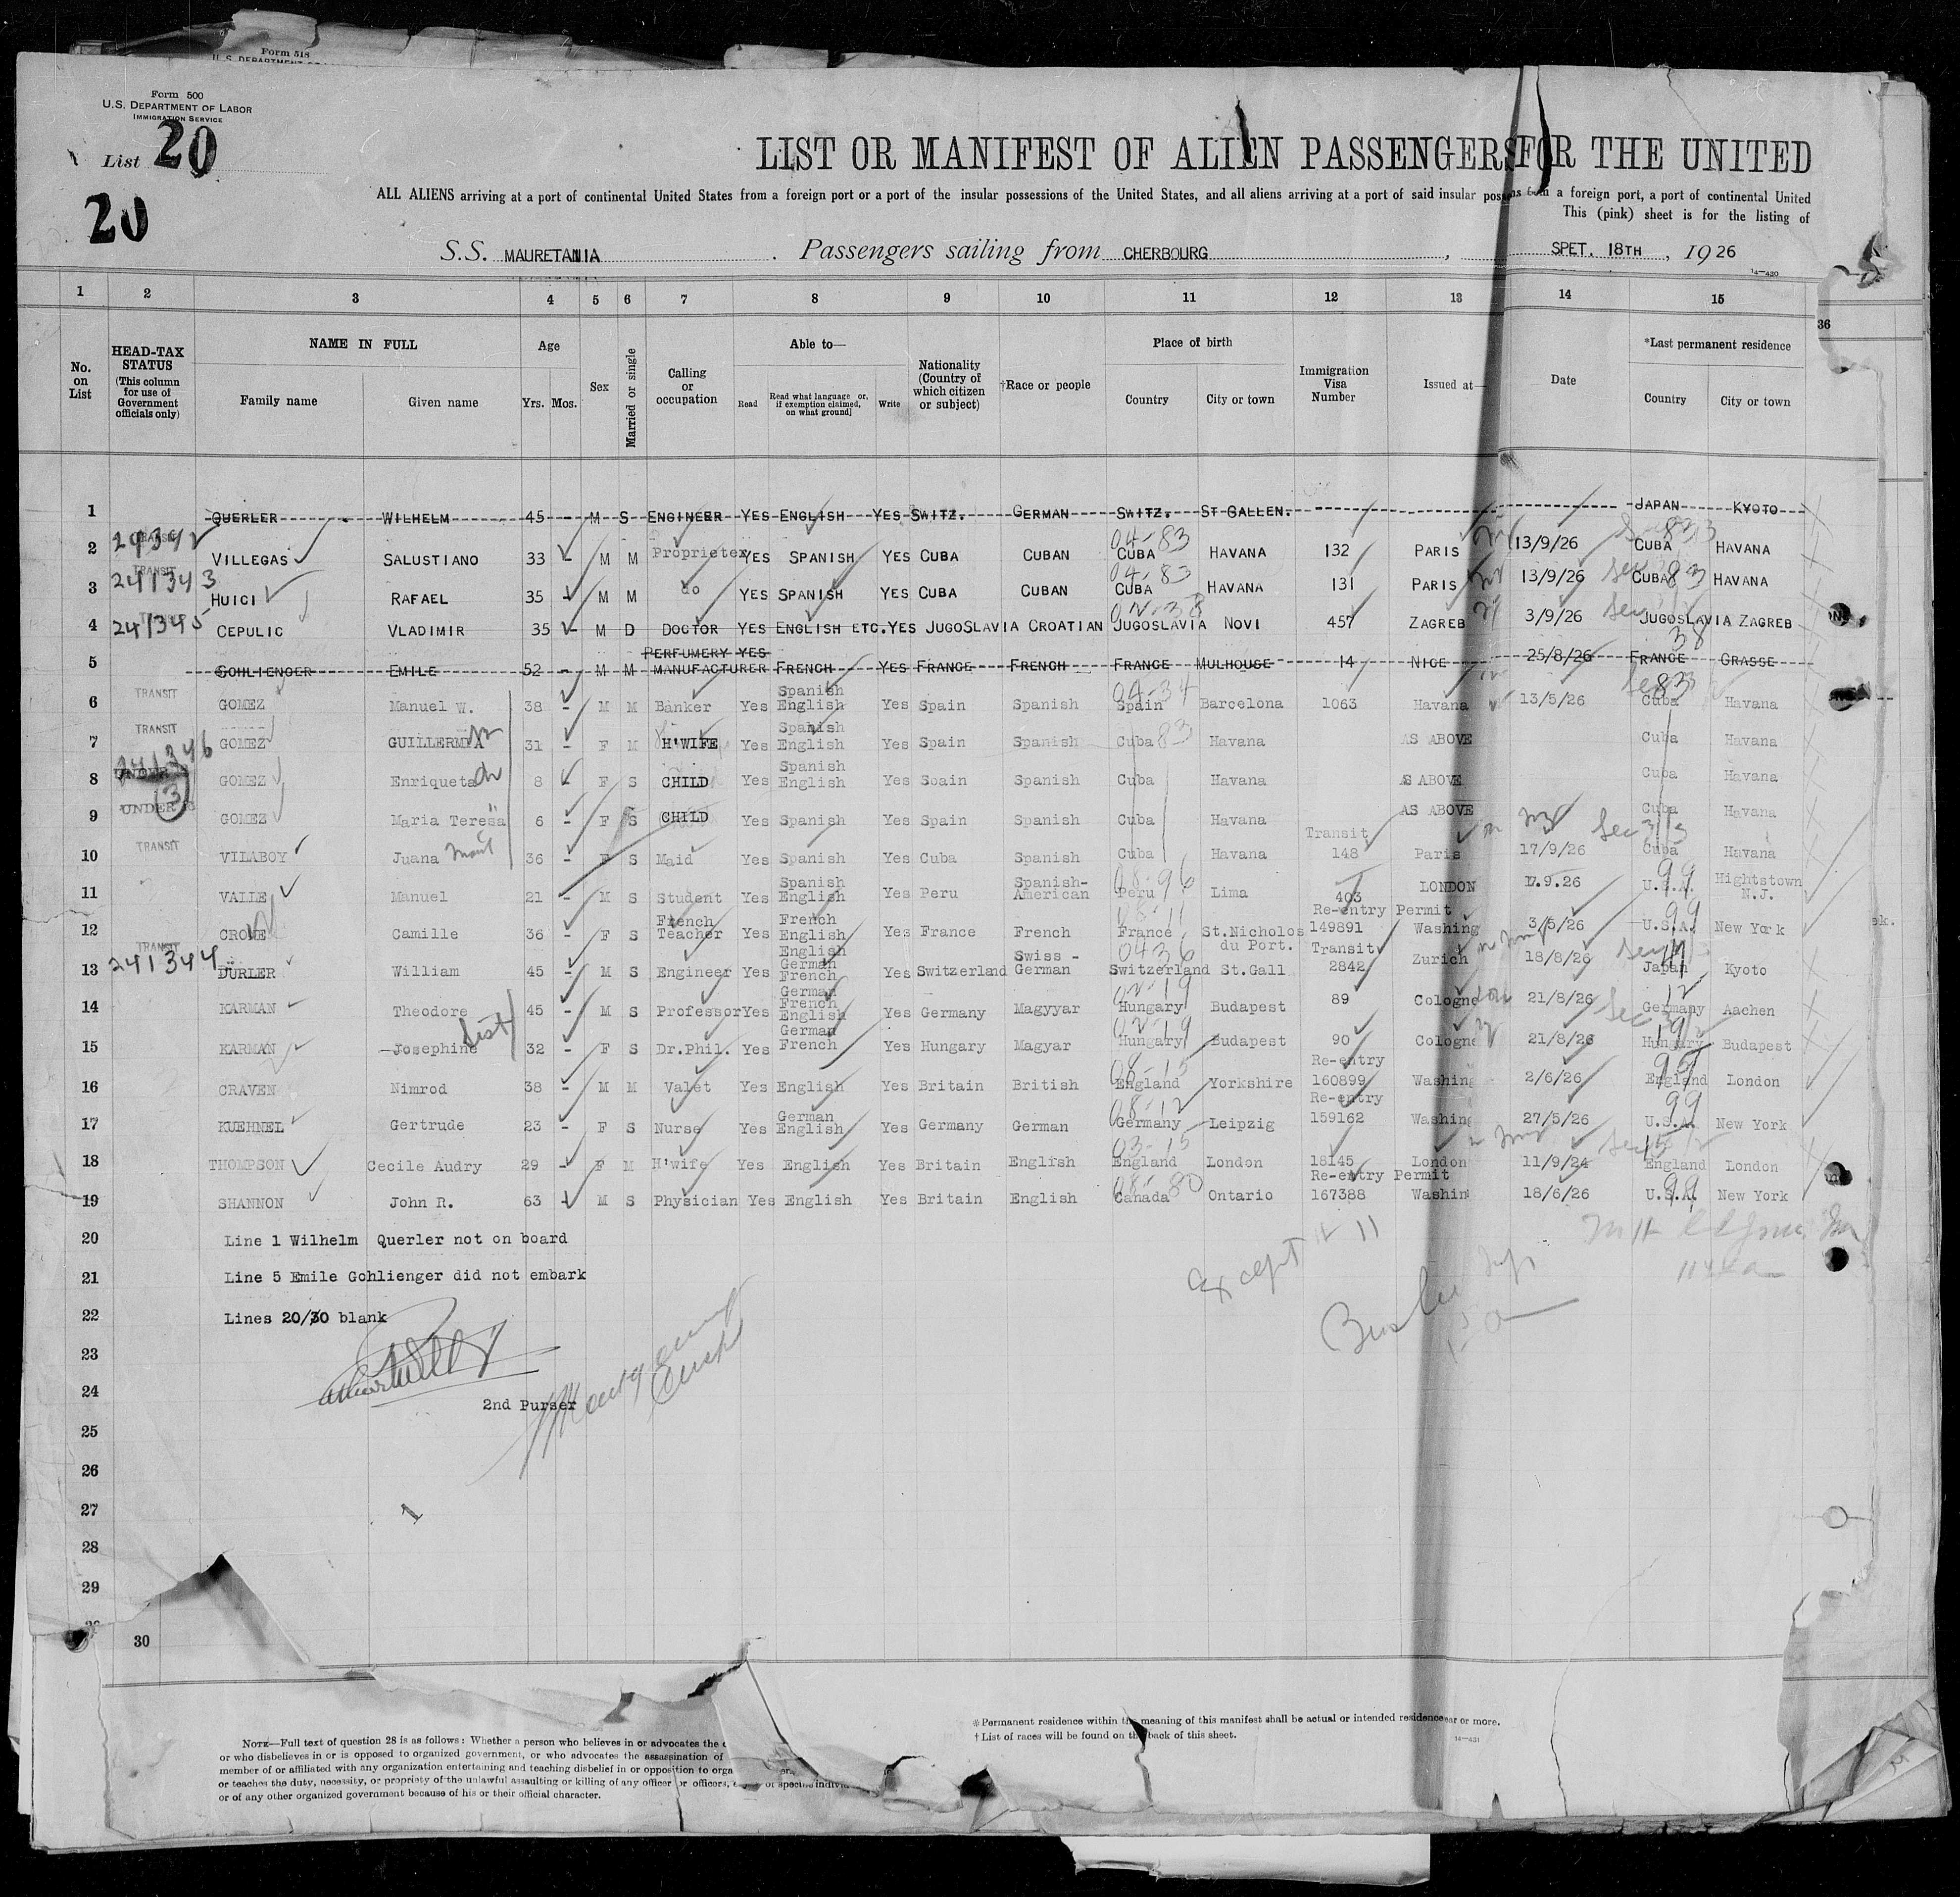 Form 518
Form 500
U.S. DEPARTMENT OF LABOR
IMMIGRATION SERVICE
List 20
20
LIST OR MANIFEST OF ALIEN PASSENGERS FOR THE UNITED
ALL ALIENS arriving at a port of continental United States from a foreign port or a port of the insular possessions of the United States, and all aliens arriving at a port of said insular a foreign port, a port of continental United
This (pink) sheet is for the listing of
S.S. MAURETANIA . Passengers sailing from CHERBOURG , SPET. 18TH , 1926
14-430
1 2 3 4 5 6 7 8 9 10 11 12 13 14 15
36
No. on List
HEAD-TAX STATUS (This column for use of Government officials only)
NAME IN FULL Family name Given name
Age Yrs. Mos.
Sex
Married or single
Calling or occupation
Able to— Read Read what language or, if exemption claimed, on what ground] Write
Nationality (Country of which citizen or subject)
†Race or people
Place of birth Country City or town
Immigration Visa Number
Issued at—
Date
*Last permanent residence Country City or town
1 QUERLER WILHELM 45 - M S ENGINEER YES ENGLISH YES SWITZ. GERMAN SWITZ. ST GALLEN. JAPAN KYOTO
2 TRANSIT 241342 VILLEGAS SALUSTIANO 33 - M M Proprieter YES SPANISH YES CUBA CUBAN 04-83 CUBA HAVANA 132 PARIS 13/9/26 CUBA HAVANA
3 TRANSIT 241343 HUICI RAFAEL 35 - M M do YES SPANISH YES CUBA CUBAN 04-83 CUBA HAVANA 131 PARIS 13/9/26 CUBA 83 HAVANA
4 241345 CEPULIC VLADIMIR 35 - M D DOCTOR YES ENGLISH ETC. YES JUGOSLAVIA CROATIAN JUGOSLAVIA NOVI 457 ZAGREB 3/9/26 JUGOSLAVIA ZAGREB 38
5 GOHLIENGER EMILE 52 - M M PERFUMERY MANUFACTURER YES FRENCH YES FRANCE FRENCH FRANCE MULHOUSE 14 NICE 25/8/26 FRANCE GRASSE
6 TRANSIT GOMEZ Manuel W. 38 - M M Banker Yes Spanish English Yes Spain Spanish 04-34 Spain Barcelona 1063 Havana 13/5/26 83 Cuba Havana
7 TRANSIT GOMEZ GUILLERMA 31 - F M H'WIFE Yes Spanish English Yes Spain Spanish Cuba 83 Havana AS ABOVE Cuba Havana
8 241346 UNDER GOMEZ Enriqueta 8 F S CHILD Yes Spanish English Yes Spain Spanish Cuba Havana AS ABOVE Cuba Havana
9 UNDER 13 GOMEZ Maria Teresa 6 - F S CHILD Yes Spanish Yes Spain Spanish Cuba Havana AS ABOVE Cuba Havana
10 TRANSIT VILABOY Juana 36 - F S Maid Yes Spanish Yes Cuba Spanish Cuba Havana Transit 148 Paris 17/9/26 Cuba Havana
11 VALLE Manuel 21 - M S Student Yes Spanish English Yes Peru Spanish-American 08-96 Peru Lima 403 LONDON 17.9.26 99 U.S.A. Hightstown N.J.
12 Camille 36 - F S French Teacher Yes French English Yes France French 08-11 France St.Nicholos du Port. Re-entry Permit 149891 Washing 3/5/26 99 U.S.A. New York
13 TRANSIT 241344 DURLER William 45 - M S Engineer Yes English German French Yes Switzerland Swiss - German 0436 Switzerland St.Gall Transit 2842 Zurich 18/8/26 Japan Kyoto
14 KARMAN Theodore 45 - M S Professor Yes German French English Yes Germany Magyyar 02-19 Hungary Budapest 89 Cologne 21/8/26 12 Germany Aachen
15 KARMAN Josephine Sist 32 - F S Dr.Phil. Yes German French Yes Hungary Magyar 02-19 Hungary Budapest 90 Cologne 21/8/26 19 Hungary Budapest
16 CRAVEN Nimrod 38 - M M Valet Yes English Yes Britain British 08-15 England Yorkshire Re-entry 160899 Washing 2/6/26 99 England London
17 KUEHNEL Gertrude 23 - F S Nurse Yes German English Yes Germany German 08-12 Germany Leipzig Re-entry 159162 Washing 27/5/26 99 U.S.A. New York
18 THOMPSON Cecile Audry 29 - F M H'wife Yes English Yes Britain English 03-15 England London 18145 London 11/9/24 15 England London
19 SHANNON John R. 63 - M S Physician Yes English Yes Britain English 08-80 Canada Ontario Re-entry Permit 167388 Washin 18/6/26 99 U.S.A. New York
20 Line 1 Wilhelm Querler not on board
21 Line 5 Emile Gohlienger did not embark
Except # 11
22 Lines 20/30 blank
23
24 2nd Purser
25
26
27
28
29
30
30
*Permanent residence within the meaning of this manifest shall be actual or intended residence or more.
†List of races will be found on the back of this sheet.
14-431
NOTE—Full text of question 28 is as follows: Whether a person who believes in or advocates the
or who disbelieves in or is opposed to organized government, or who advocates the assassination of
member of or affiliated with any organization entertaining and teaching disbelief in or opposition to
or teaches the duty, necessity, or propriety of the unlawful assaulting or killing of any officer or officers, of specific
or of any other organized government because of his or their official character.